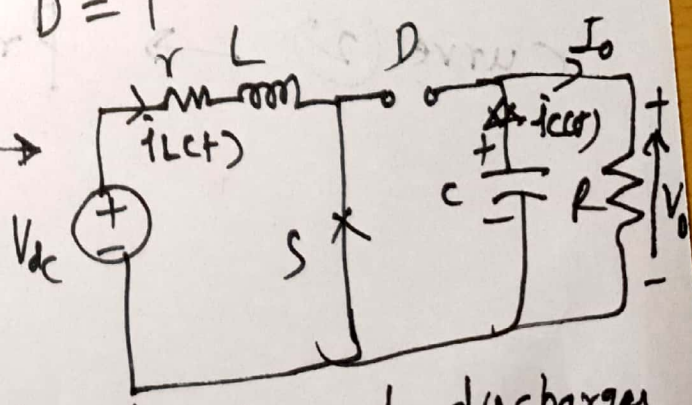 D = 1
r L D I₀
iL(t) ic(t)
+ +
+ C R V₀
Vdc S
- - -
discharges